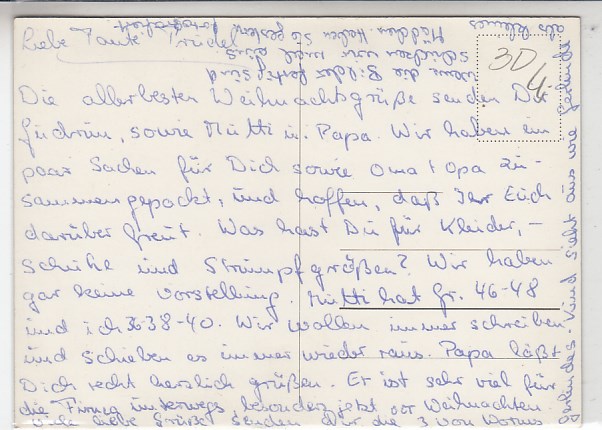 Liebe Tante Trudel
Die allerbesten Weihnachtsgrüße senden Dir
Gudrun, sowie Mutti u. Papa. Wir haben ein
paar Sachen für Dich sowie Oma + Opa zu-
sammengepackt, und hoffen, daß Ihr Euch
darüber freut. Was hast Du für Kleider,-
Schuhe und Strumpfgrößen? Wir haben
gar keine Vorstellung. Mutti hat Gr. 46-48
und ich 38-40. Wir wollen immer schreiben
und schieben es immer wieder raus. Papa läßt
Dich recht herzlich grüßen. Er ist sehr viel für
die Firma unterwegs besonders jetzt vor Weihnachten.
Viele liebe Grüße senden Dir die 3 von Worms
und sieht aus wie
wenn die Bilder fertig sind
schicken wir mal eins
Mädchen. Haben sie gestern fotografiert.
als kleines
3D
4